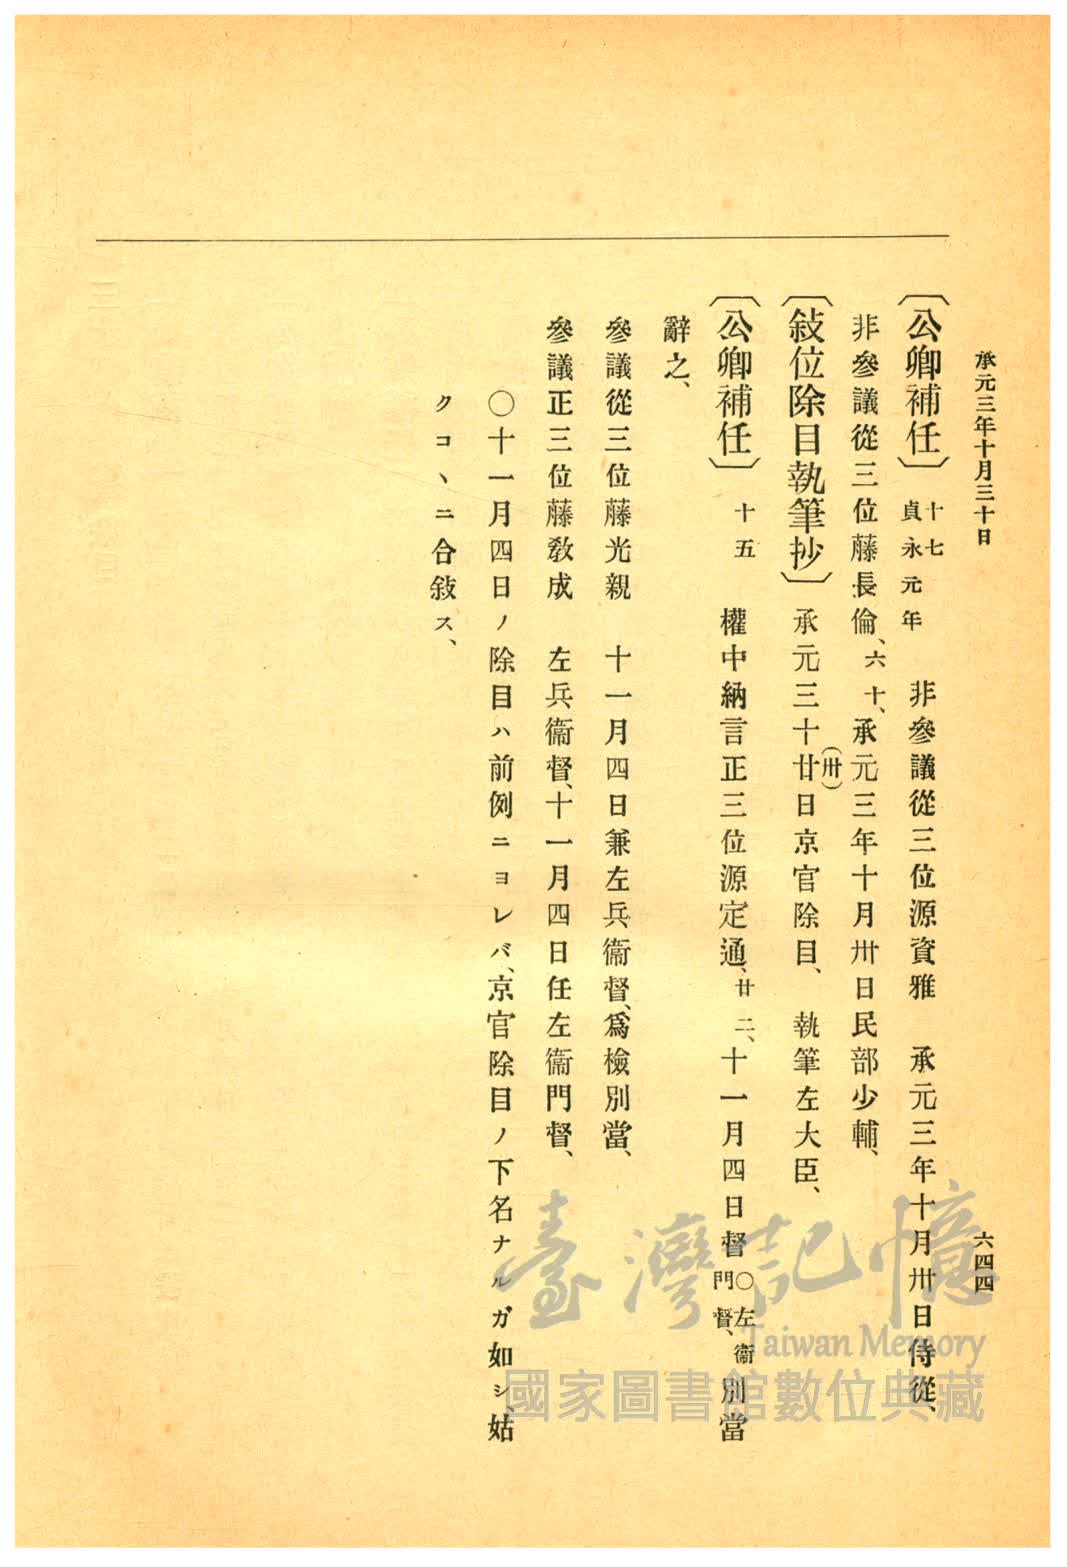 承元三年十月三十日
六四四
〔公卿補任〕十七貞永元年 非參議從三位源資雅 承元三年十月卅日侍從、
非參議從三位藤長倫、六十、承元三年十月卅日民部少輔、
〔敍位除目執筆抄〕承元三十廿(卅)日京官除目、執筆左大臣、
〔公卿補任〕十五 權中納言正三位源定通、廿二、十一月四日督〇左衞門督、別當
辭之、
參議從三位藤光親 十一月四日兼左兵衞督、爲檢別當、
參議正三位藤敎成 左兵衞督、十一月四日任左衞門督、
〇十一月四日ノ除目ハ前例ニヨレバ、京官除目ノ下名ナルガ如シ、姑
クコヽニ合敍ス、
臺灣記憶
Taiwan Memory
國家圖書館數位典藏